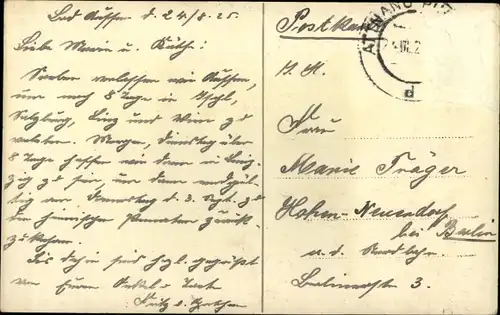 Bad Aussee d. 24/8. 25.
Liebe Marie u. Käthe!
Soeben verlassen wir Aussee,
um noch 8 Tage in Ischl,
Salzburg, Linz und Wien zu
weilen. Morgen, Dienstag über
8 Tage hoffen wir dann in Leip-
zig zu sein um dann endgül-
tig am Donnerstag d. 3. Sept. zu
den heimischen Penaten zurück-
zukehren.
Bis dahin seid hzl. gegrüßt
von Eurem Onkel u. Tante
Fritz u.
Postkarte
ATTNANG P
Frau
Marie Träger
Hohen-Neuendorf
bei Berlin
a. d. Nordbahn
Berlinerstr 3.